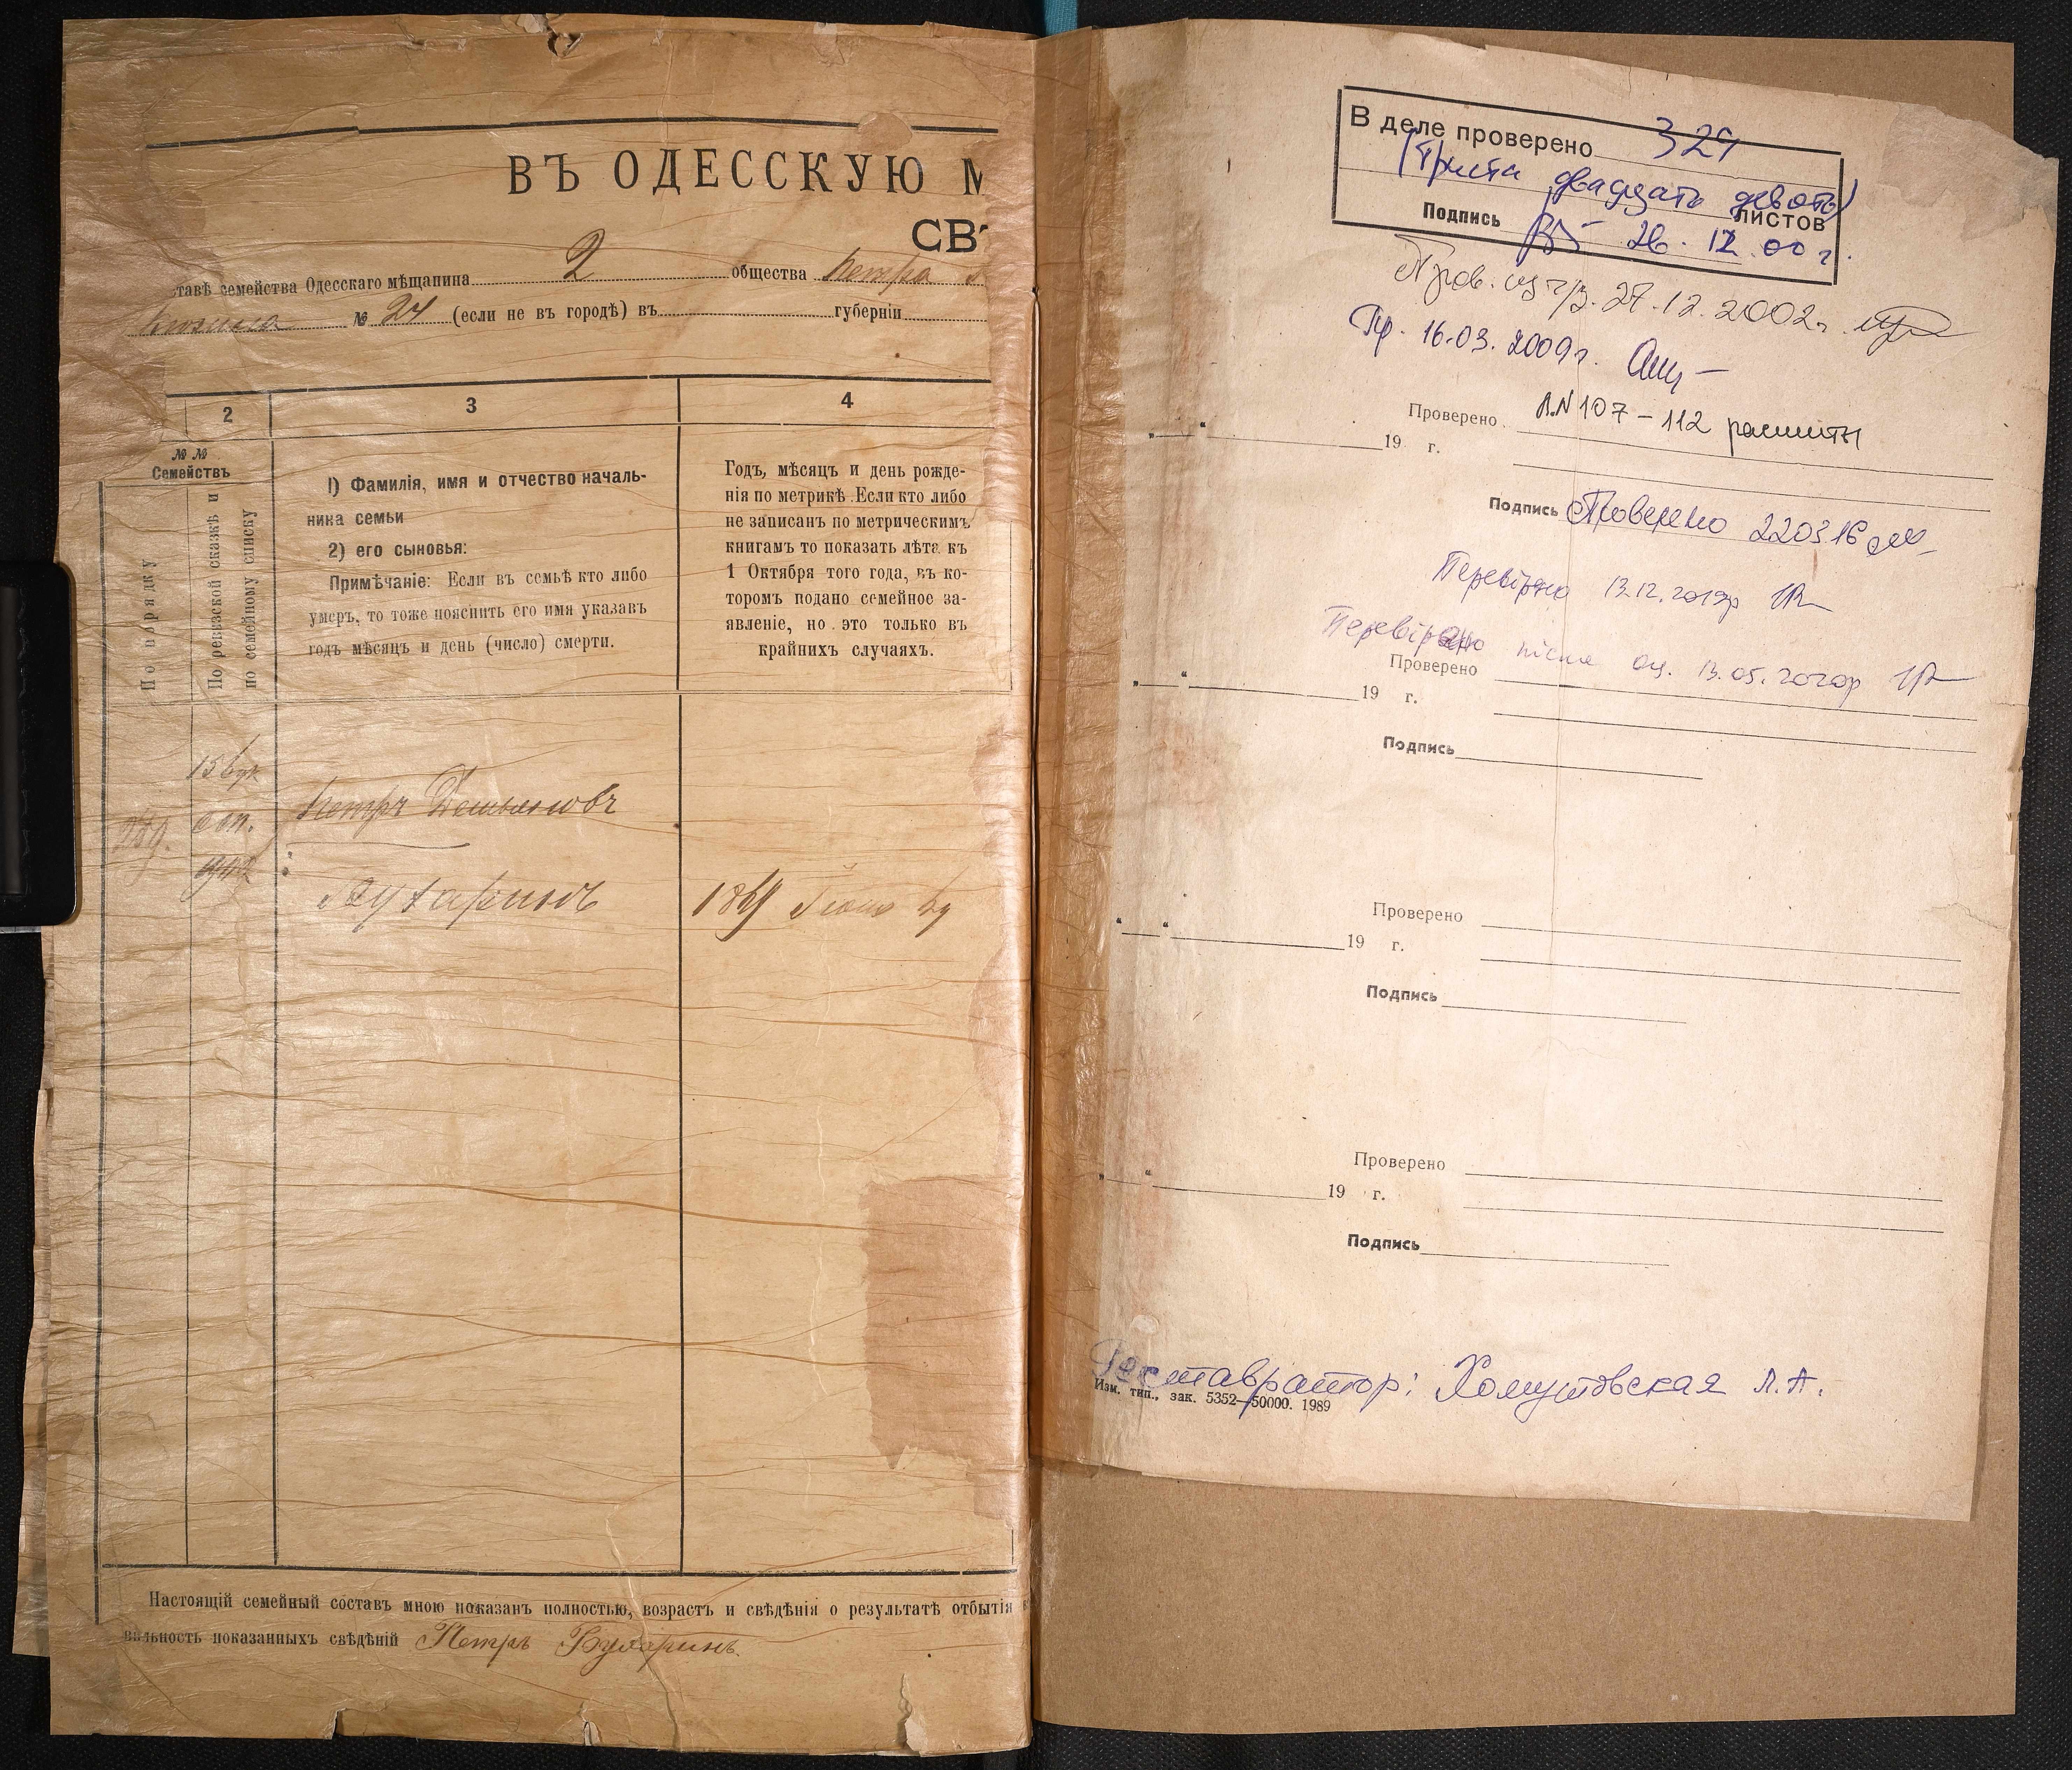 ВЪ ОДЕССКУЮ М
СВ
ставѣ семейства Одесскаго мѣщанина 2 общества Петра
№ 24 (если не въ городѣ) въ губерніи
2 3 4
№ №
Семействъ
По порядку
По ревизской сказкѣ и
по семейному списку
1) Фамилія, имя и отчество началь-
ника семьи
2) его сыновья:
Примѣчаніе: Если въ семьѣ кто либо
умеръ, то тоже пояснить его имя указавъ
годъ мѣсяцъ и день (число) смерти.
Годъ, мѣсяцъ и день рожде-
нія по метрикѣ. Если кто либо
не записанъ по метрическимъ
книгамъ то показать лѣта къ
1 Октября того года, въ ко-
торомъ подано семейное за-
явленіе, но это только въ
крайнихъ случаяхъ.
Петръ Демьяновъ
Бухаринъ
Настоящій семейный составъ мною показанъ полностью, возрастъ и свѣдѣнія о результатѣ отбытія
вильность показанныхъ свѣдѣній Петръ Бухаринъ
В деле проверено 329
(триста двадцать девять)
листов
Подпись 26.12.00 г.
27.12.2002г.
Пр. 16.03.2009г.
Проверено Л.N 107-112 расшиты
„ “ 19 г.
Подпись Проверено 220316
Перевірено 13.12.2019р
Перевірено після оц. 13.05.2020р
Проверено
„ “ 19 г.
Подпись
Проверено
„ “ 19 г.
Подпись
Проверено
„ “ 19 г.
Подпись
Реставратор: Хомутовская Л.А.
Изм. тип., зак. 5352—50000. 1989